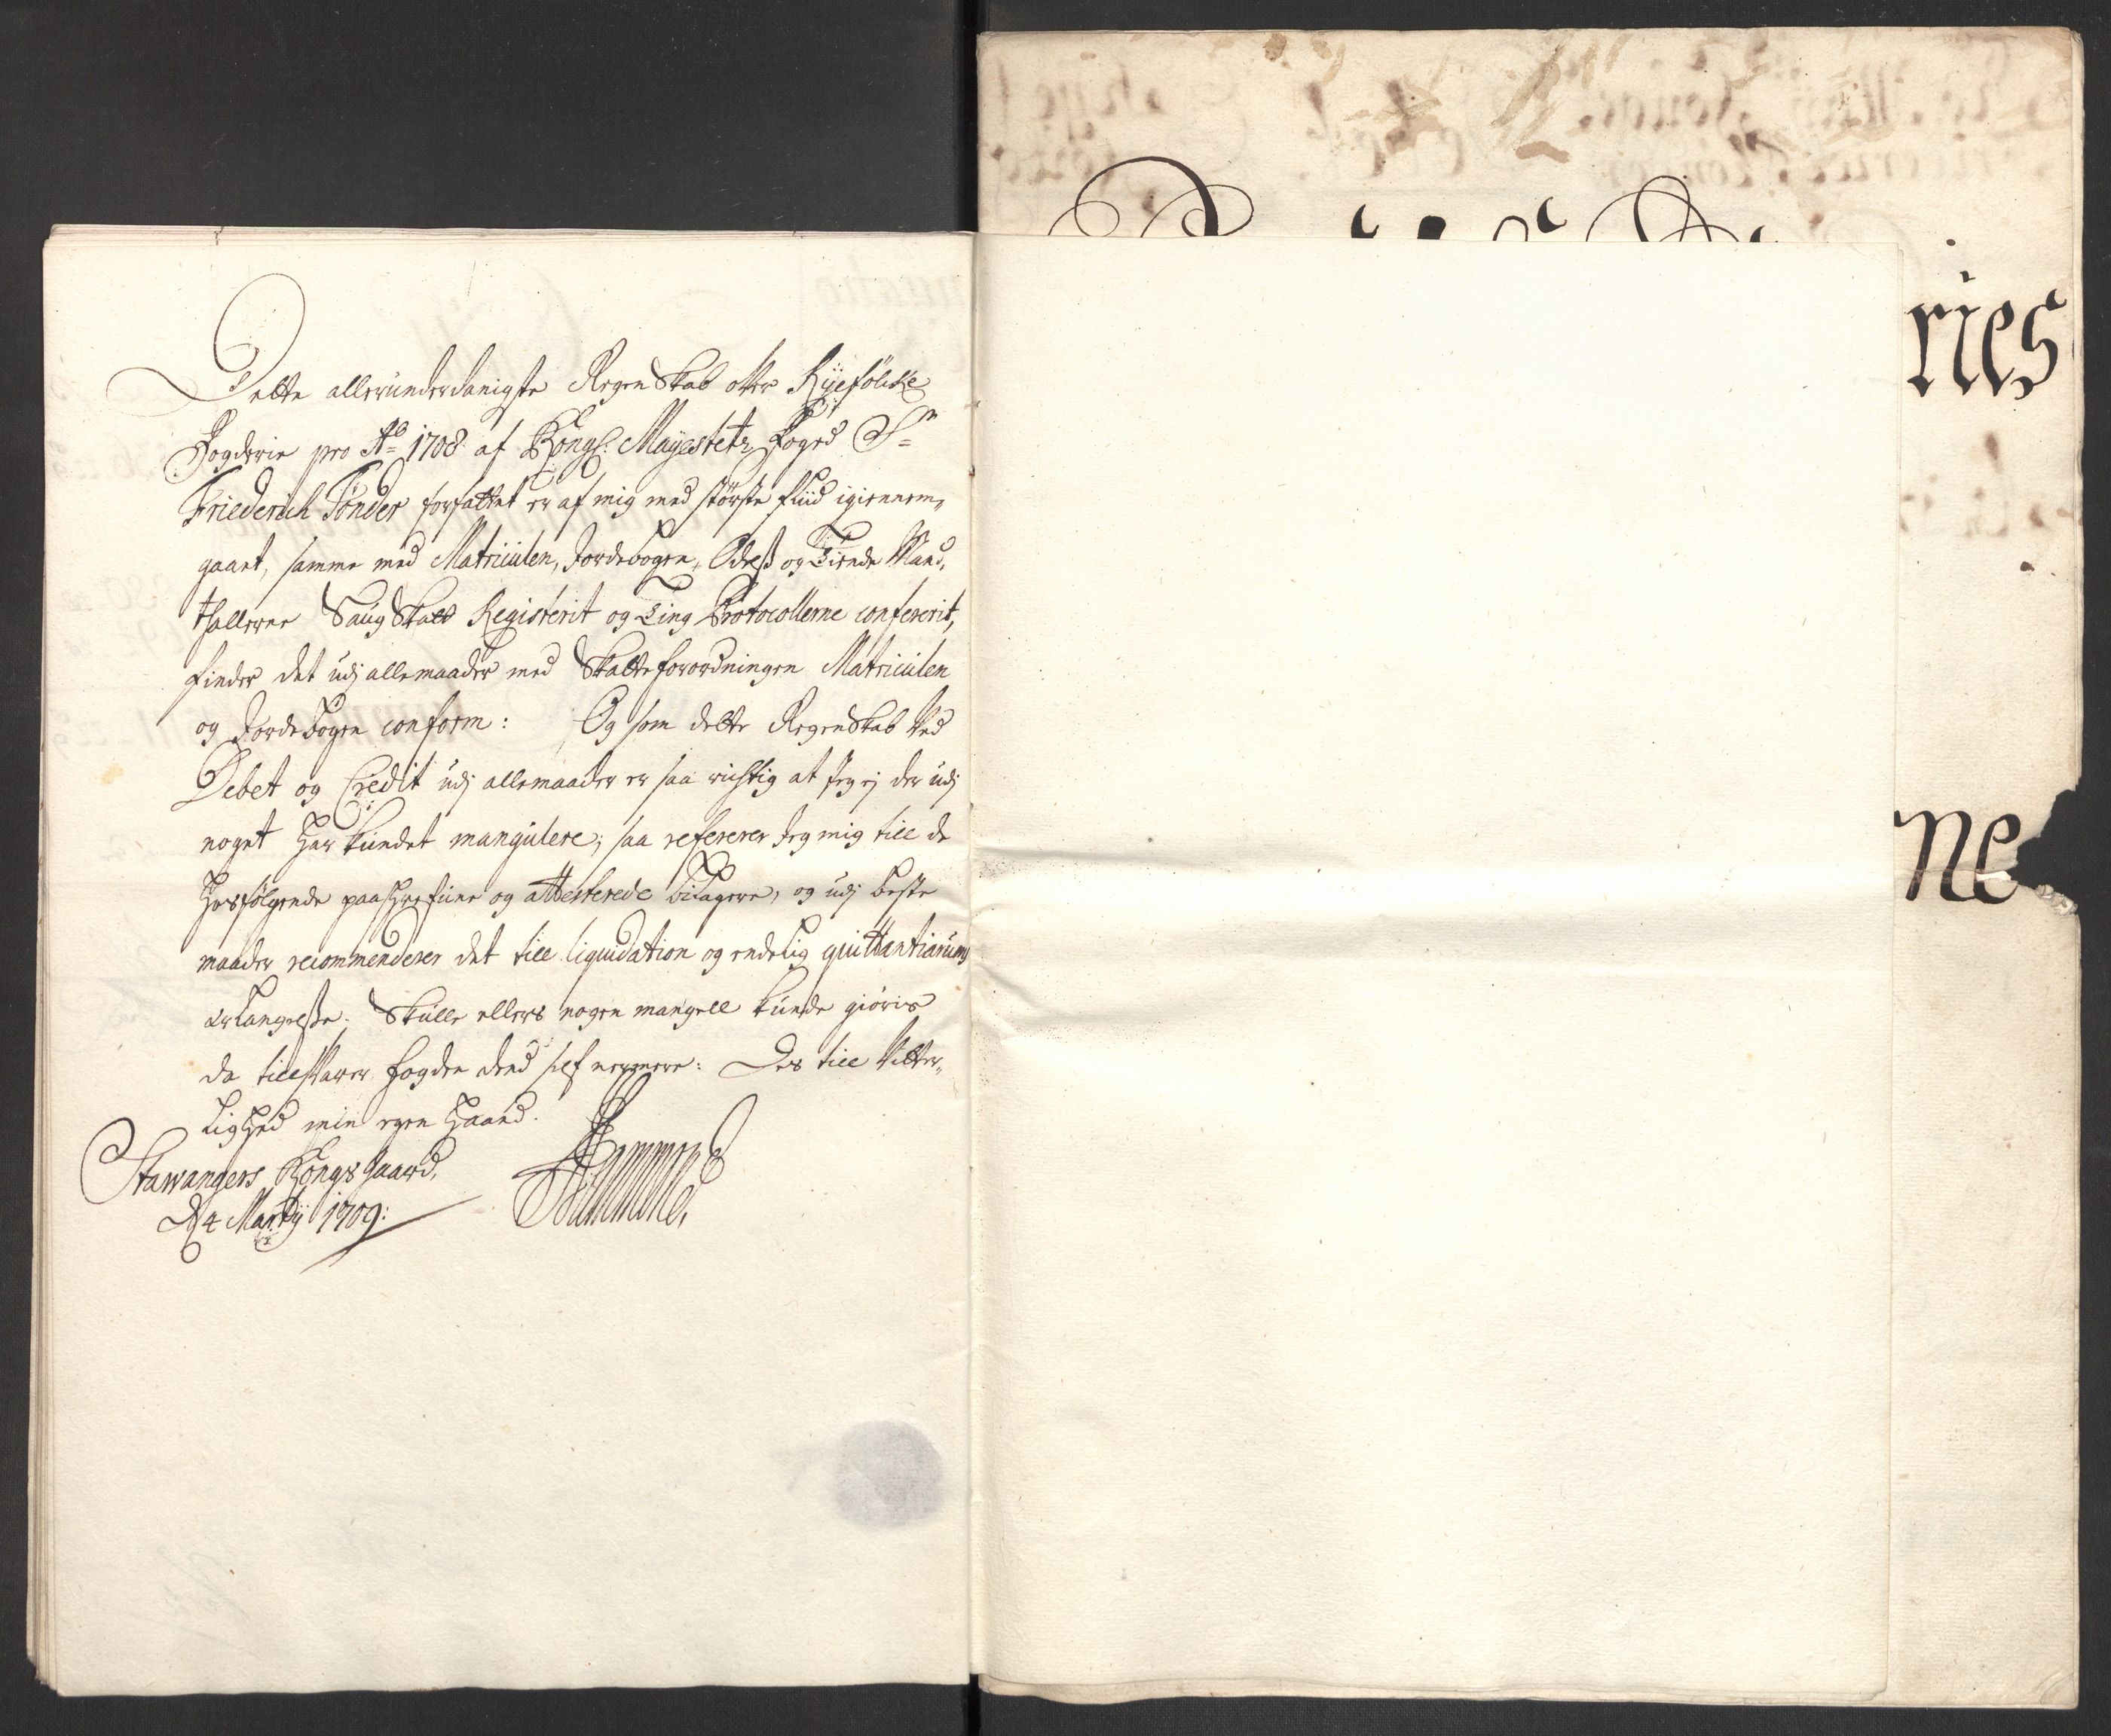 Dette allerunderdanigste Regenskab ofver Ryefölcke
Fogderie pro Ao 1708 af Kongl: Mayestetz Foged Sr
Friederich Tönder forfattet er af mig med störste fliid igiennem,,
gaaet, samme med Matriculen, Jordebogen, Odels og Tiende Mand,
thallerne Saug Skatt Registerit og Ting Protocollerne confererit,
finder det udj alle maader med Skatteforordningen Matriculen
og Jordebogen conform: Og som dette Regenskab ved
Debet og Credit udj alle maader er saa rigtig at Jeg ej der udj
noget har kundet mangulere; saa refererer Jeg mig till de
hosfölgende paaschrefune og attesterede bilagere, og udj beste
maader recommenderer det till liquidation og endelig quittantiarum
erlangelse. Skulle ellers nogen mangell kunde giöris
da tillsvarer fogden dend self nermere: Des till vitter,,
lighed min egen haand.
Stawangers Kongsgaard,
D 4 Martij 1709:
ries
ne